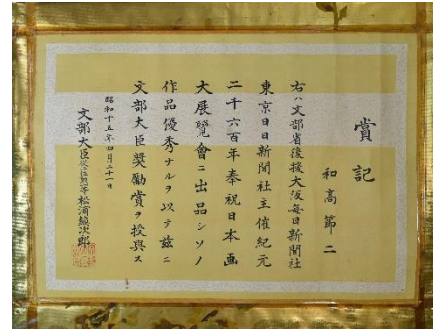 賞記
和高節二
右ハ文部省後援大阪毎日新聞社
東京日日新聞社主催紀元
二千六百年奉祝日本画
大展覽會ニ出品シソノ
作品優秀ナルヲ以テ茲ニ
文部大臣奬勵賞ヲ授與ス
昭和十五年四月二十一日
文部大臣從三位勲一等松浦鎮次郎